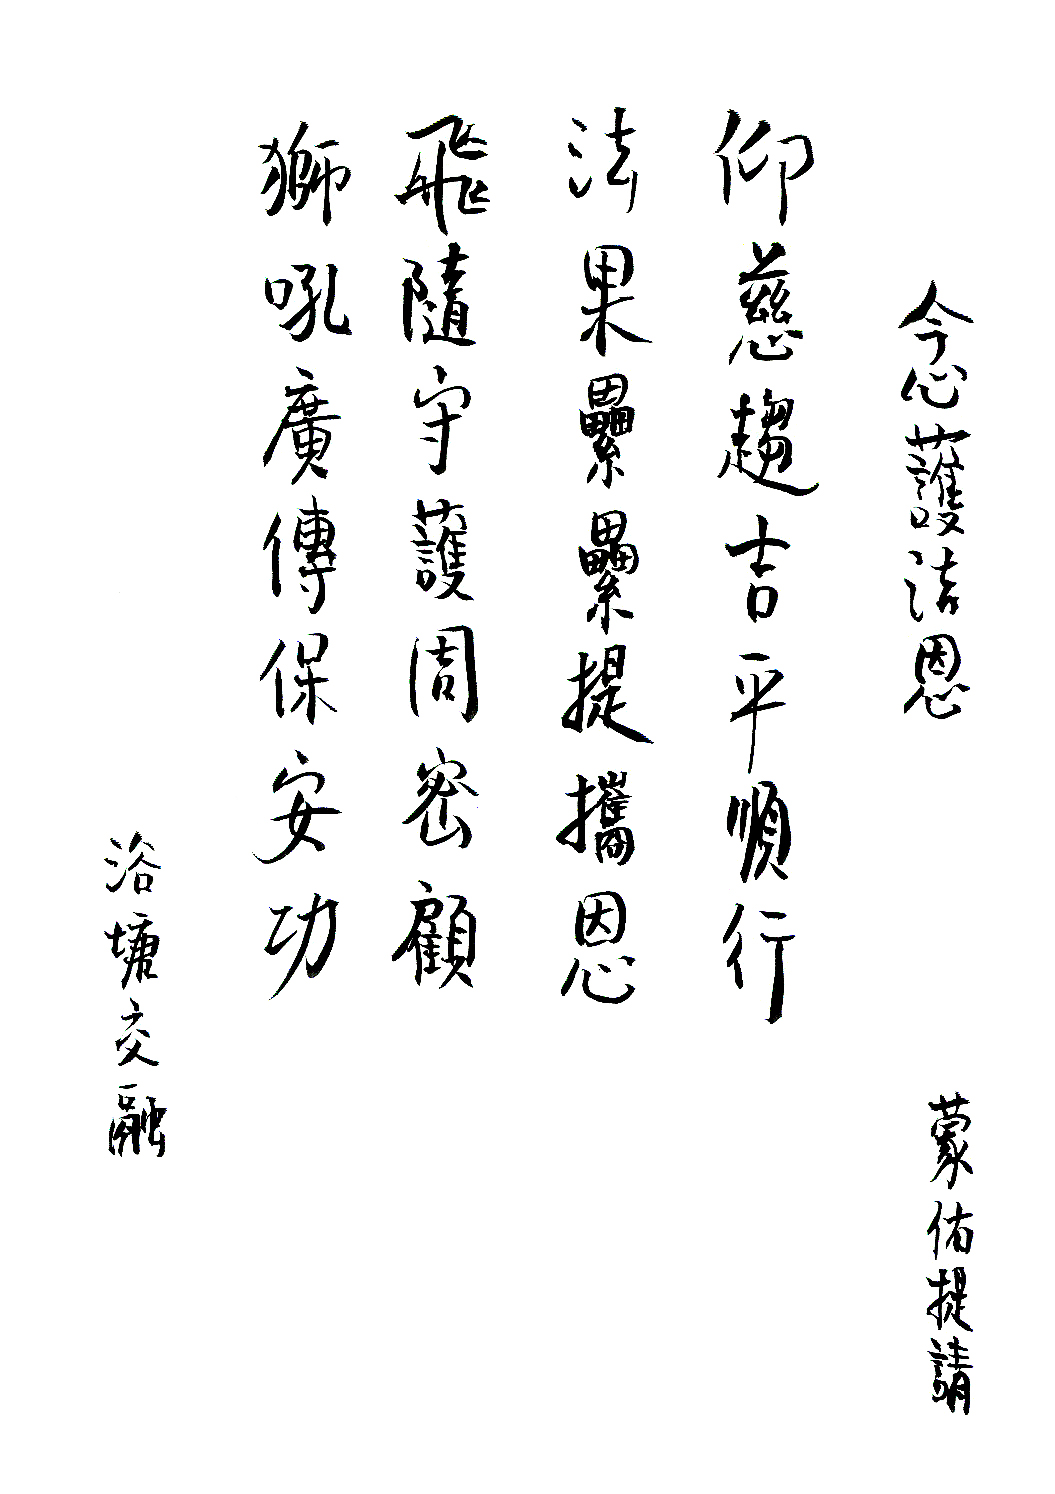 今心護法恩
蒙佑提請
仰慈趨吉平順行
法果纍纍提攜恩
飛隨守護周密顧
獅吼廣傳保安功
浴塘交融